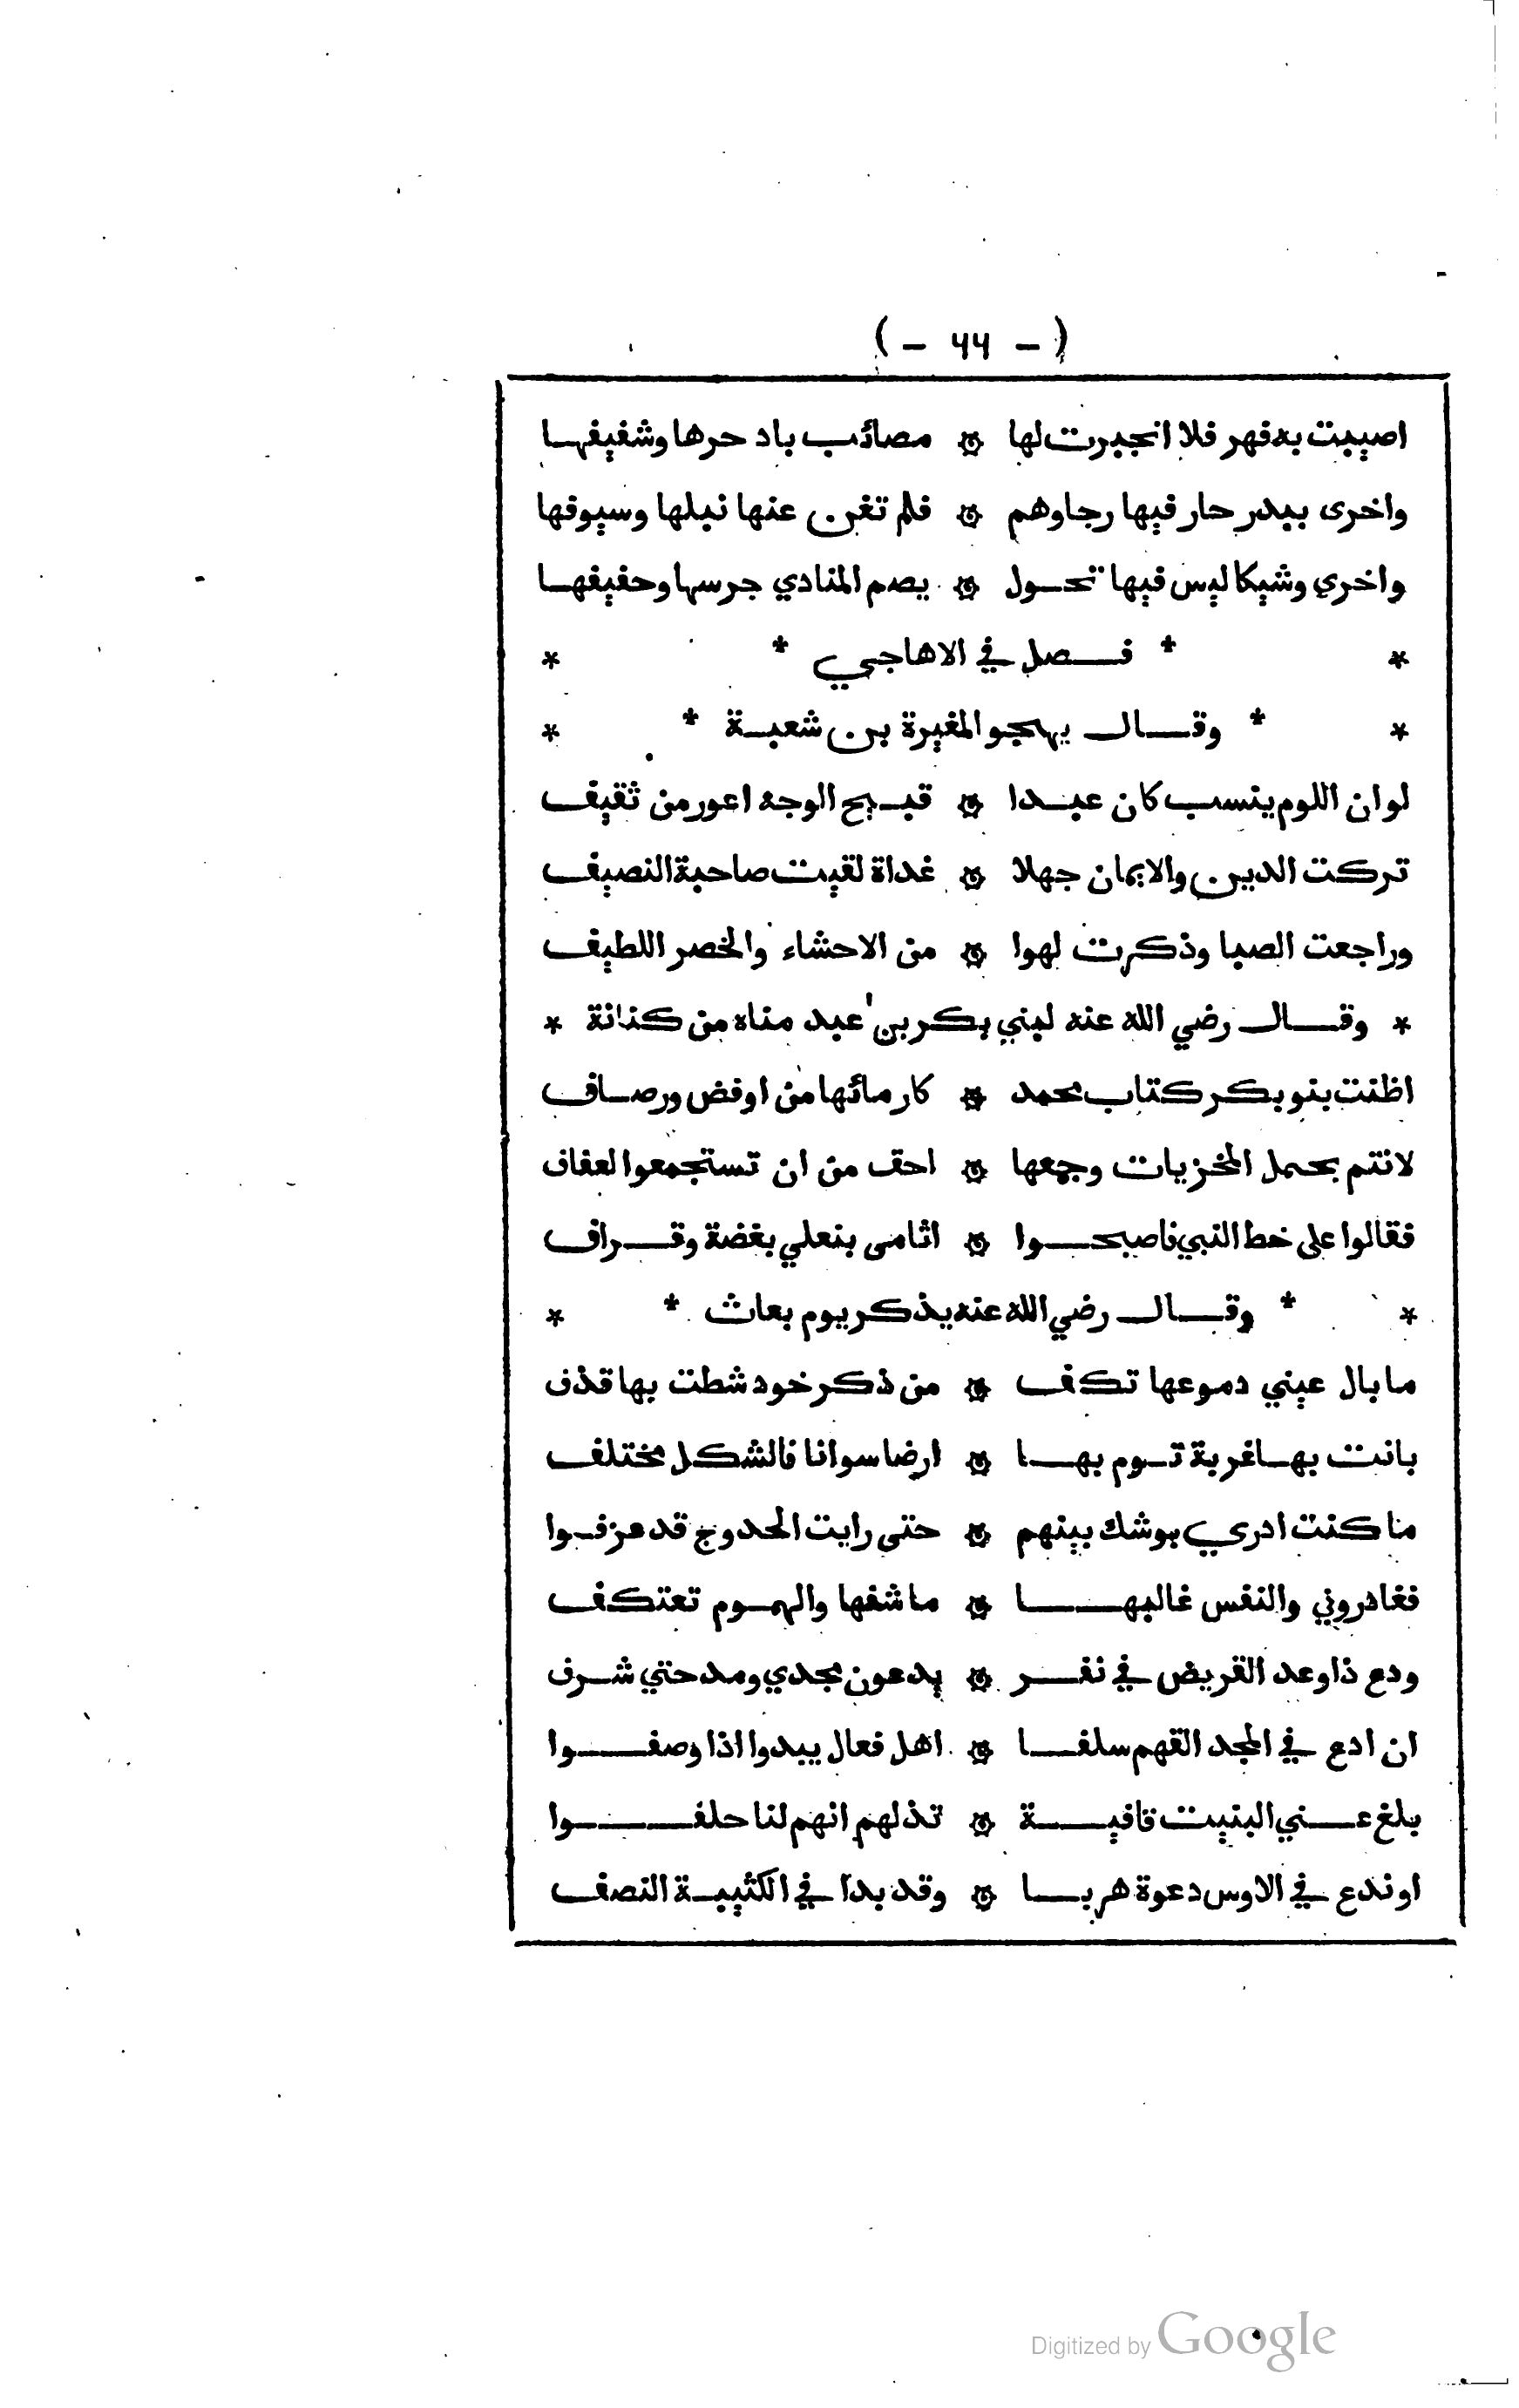 ( - ٦٦ - )
اصيبت به فهر فلا انجبرت لها ۞ مصائب باد حرها وشفيفها
واخرى ببدر حار فيها رجاوهم ۞ فلم تغن عنها نبلها وسيوفها
واخري وشيكا ليس فيها تحول ۞ يصم المنادي جرسها وحفيفها
* * فصل في الاهاجي * *
* * وقال يهجو المغيرة بن شعبة * *
لوان اللوم ينسب كان عبدا ۞ قبيح الوجه اعور من ثقيف
تركت الدين والايمان جهلا ۞ غداة لقيت صاحبة النصيف
وراجعت الصبا وذكرت لهوا ۞ من الاحشاء والخصر اللطيف
* وقال رضي الله عنه لبني بكر بن عبد مناه من كنانة *
اظنت بنو بكر كتاب محمد ۞ كارمائها من اوفض ورصاف
لانتم بحمل المخزيات وجمعها ۞ احق من ان تستجمعوا لعفاف
فقالوا على خط النبي فاصبحوا ۞ اثامى بنعلي بغضة وقراف
* * وقال رضي الله عنه يذكر يوم بعاث * *
ما بال عيني دموعها تكف ۞ من ذكر خود شطت بها قذف
بانت بها غربة توم بها ۞ ارضا سوانا فالشكل مختلف
ما كنت ادري بوشك بينهم ۞ حتى رايت الحدوج قد عزفوا
فغادروني والنفس غالبها ۞ ما شفها والهموم تعتكف
ودع ذا وعد القريض في نفر ۞ يدعون مجدي ومدحتي شرف
ان ادع في المجد القهم سلفا ۞ اهل فعال يبدوا اذا وصفوا
بلغ عني البنيت قافية ۞ تذلهم انهم لنا حلفوا
او ندع في الاوس دعوة هربا ۞ وقد بدا في الكثيبة النصف
Digitized by Google